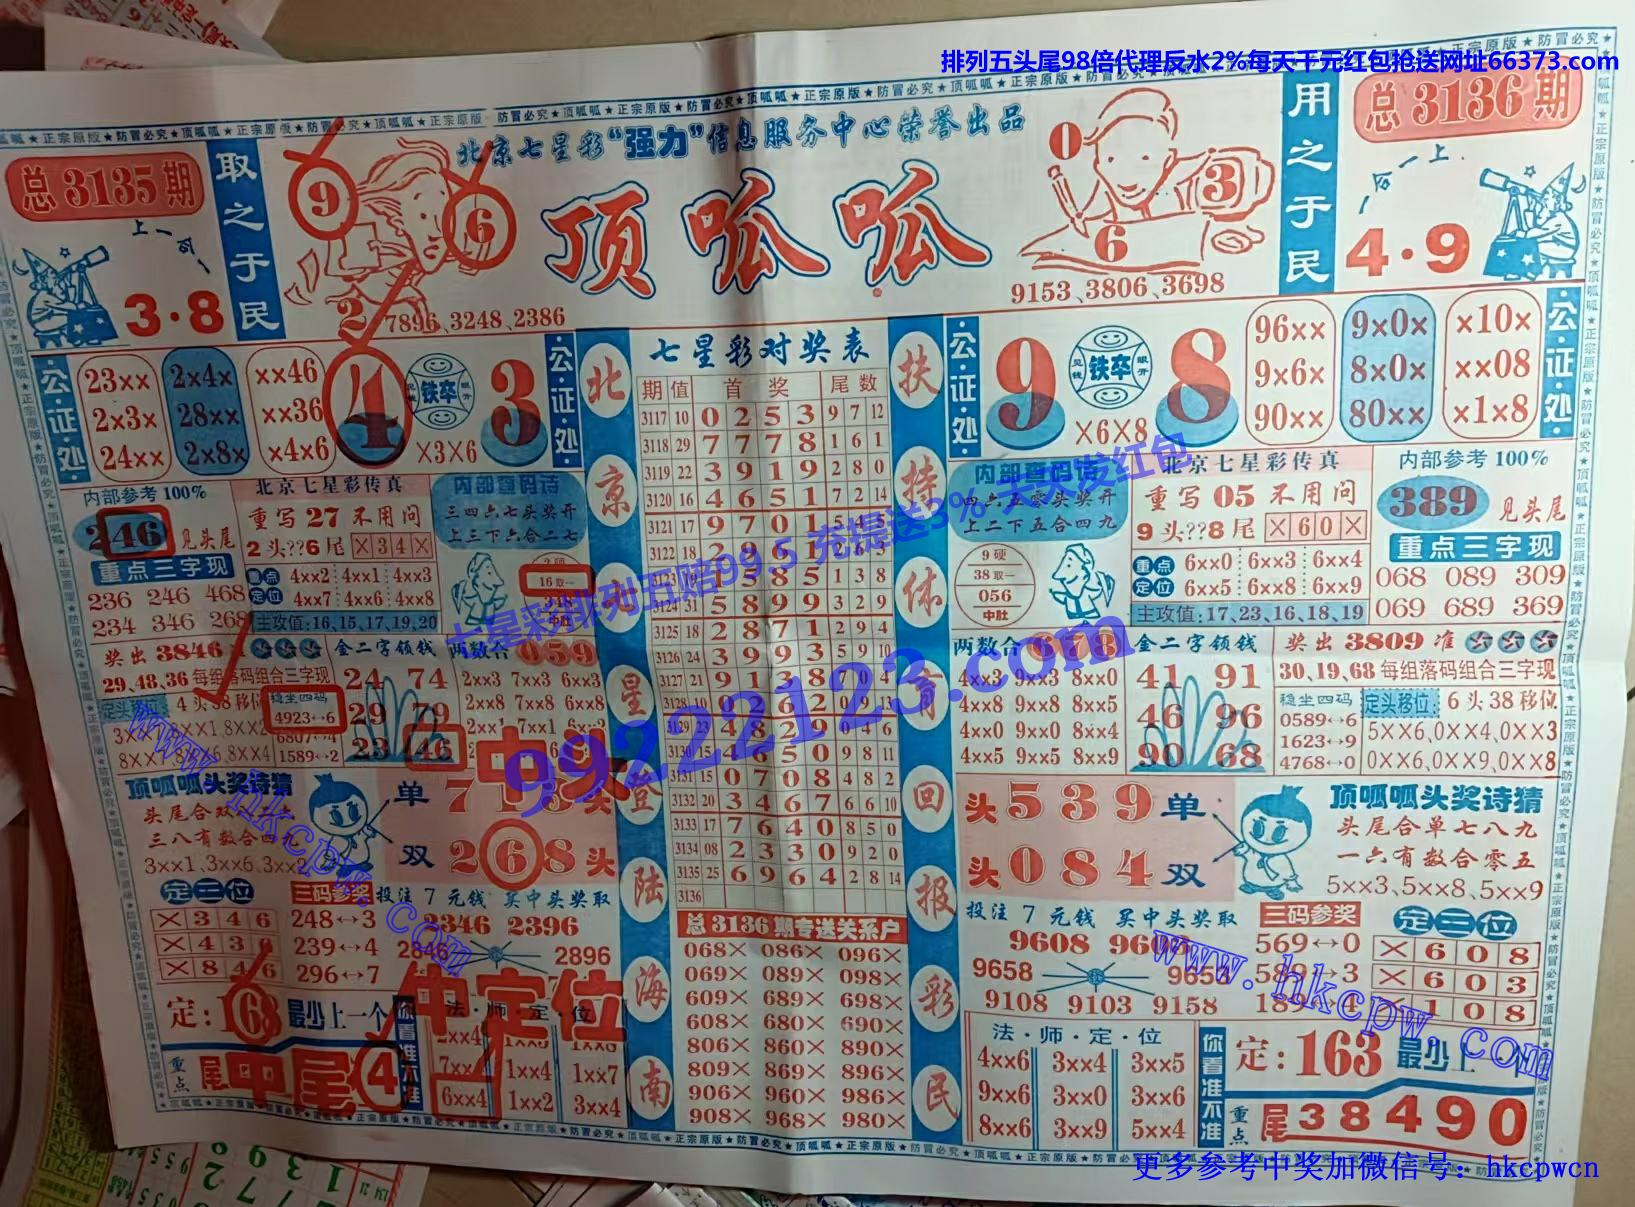 排列五头尾98倍代理反水2%每天千元红包抢送网址66373.com
总3135期
取之于民
上一合一
3·8
9
6
2
7896,3248,2386
北京七星彩“强力”信息服务中心荣誉出品
顶呱呱
0
3
6
9153、3806、3698
用之于民
总3136期
上一合一
4·9
公·证·处
23×× 2×4× ××46
2×3× 28×× ××36
24×× 2×8× ×4×6
4 铁卒 3
×3×6
公·证·处
内部参考100%
246 见头尾
重点三字现
236 246 468
234 346 268
北京七星彩传真
重写27不用问
2头??6尾 ×34×
重点定位
4××2 4××1 4××3
4××7 4××6 4××8
主攻值:16,15,17,19,20
内部查码诗
三四六七头奖开
上三下六合二七
16取一
中肚
奖出3846准
29、48、36每组落码组合三字现
定头移位 4头38移位
稳坐四码
4923↔6
6807↔4
1589↔2
金二字领钱
24 74
29 79
23 46
两数合 059
2××3 7××3 6××3
2××8 7××8 6××8
中头
顶呱呱头奖诗猜
三八有数合四九
3××1、3××6、3××2
单 715 头
双 268 头
定三位
×346
×846
三码参奖
248↔3
239↔4
296↔7
投注7元钱 买中头奖取
2346 2396
2846 2896
中定位
定:168 最少上一个
重点
中尾④
你看准不准
法·师·定·位
2××4
7××
6××4
1××4
1××2
1××7
3××4
北京七星登陆海南
七星彩对奖表
期 值 首奖 尾数
3117 10 0 2 5 3 9 7 12
3118 29 7 7 7 8 1 6 1
3119 22 3 9 1 9 2 8 0
3120 16 4 6 5 1 7 2 14
3121 17 9 7 0 1
3122 18 2 9 6 1 2 6 3
3123 19 1 5 8 5 1 3 8
3124 31 5 8 9 9 3 2 9
3125 18 2 8 7 1 2 9 4
3126 24 3 9 9 3 5 9 10
3127 21 9 1 3 8 7 0 4
3128 10 0 2 6 2 0 9 13
3129 23 4 8 2 9 0 4 6
3130 15 4 6 5 0 9 8 11
3131 15 0 7 0 8 4 8 2
3132 20 3 4 6 7 6 6 10
3133 17 7 6 4 0 8 5 0
3134 08 2 3 3 0 9 2 0
3135 25 6 9 6 4 2 8 14
3136
总3136期专送关系户
068× 086× 096×
069× 089× 098×
609× 689× 698×
608× 680× 690×
806× 860× 890×
809× 869× 896×
906× 960× 986×
908× 968× 980×
扶持体育回报彩民
公·证·处
9 铁卒 8
×6×8
96×× 9×0× ×10×
9×6× 8×0× ××08
90×× 80×× ×1×8
公·证·处
内部查码诗
四六五零头奖开
上二下五合四九
9硬
38取一
056
中肚
北京七星彩传真
重写05不用问
9头??8尾 ×60×
重点定位
6××0 6××3 6××4
6××5 6××8 6××9
主攻值:17,23,16,18,19
内部参考100%
389 见头尾
重点三字现
068 089 309
069 689 369
两数合 678
4××3 9××3 8××0
4××8 9××8 8××5
4××0 9××0 8××4
4××5 9××5 8××9
金二字领钱
41 91
46 96
90 68
奖出3809准
30、19、68每组落码组合三字现
稳坐四码
0589↔6
1623↔9
4768↔0
定头移位: 6头38移位
5××6,0××4,0××3
0××6,0××9,0××8
头539单
头084双
顶呱呱头奖诗猜
头尾合单七八九
一六有数合零五
5××3、5××8、5××9
投注7元钱 买中头奖取
9608
9658 9653
9108 9103 9158
三码参奖
569↔0
589↔3
189↔4
定三位
×608
×603
×108
法·师·定·位
4××6 3××4 3××5
9××6 3××0 3××6
8××6 3××9 5××4
你看准不准
定:163 最少上一个
重点
尾38490
七星彩排列五赔99.5 充提送3% 天天发红包
99222123.com
www.hkcpw.com
www.hkcpw.com
更多参考中奖加微信号：hkcpwcn